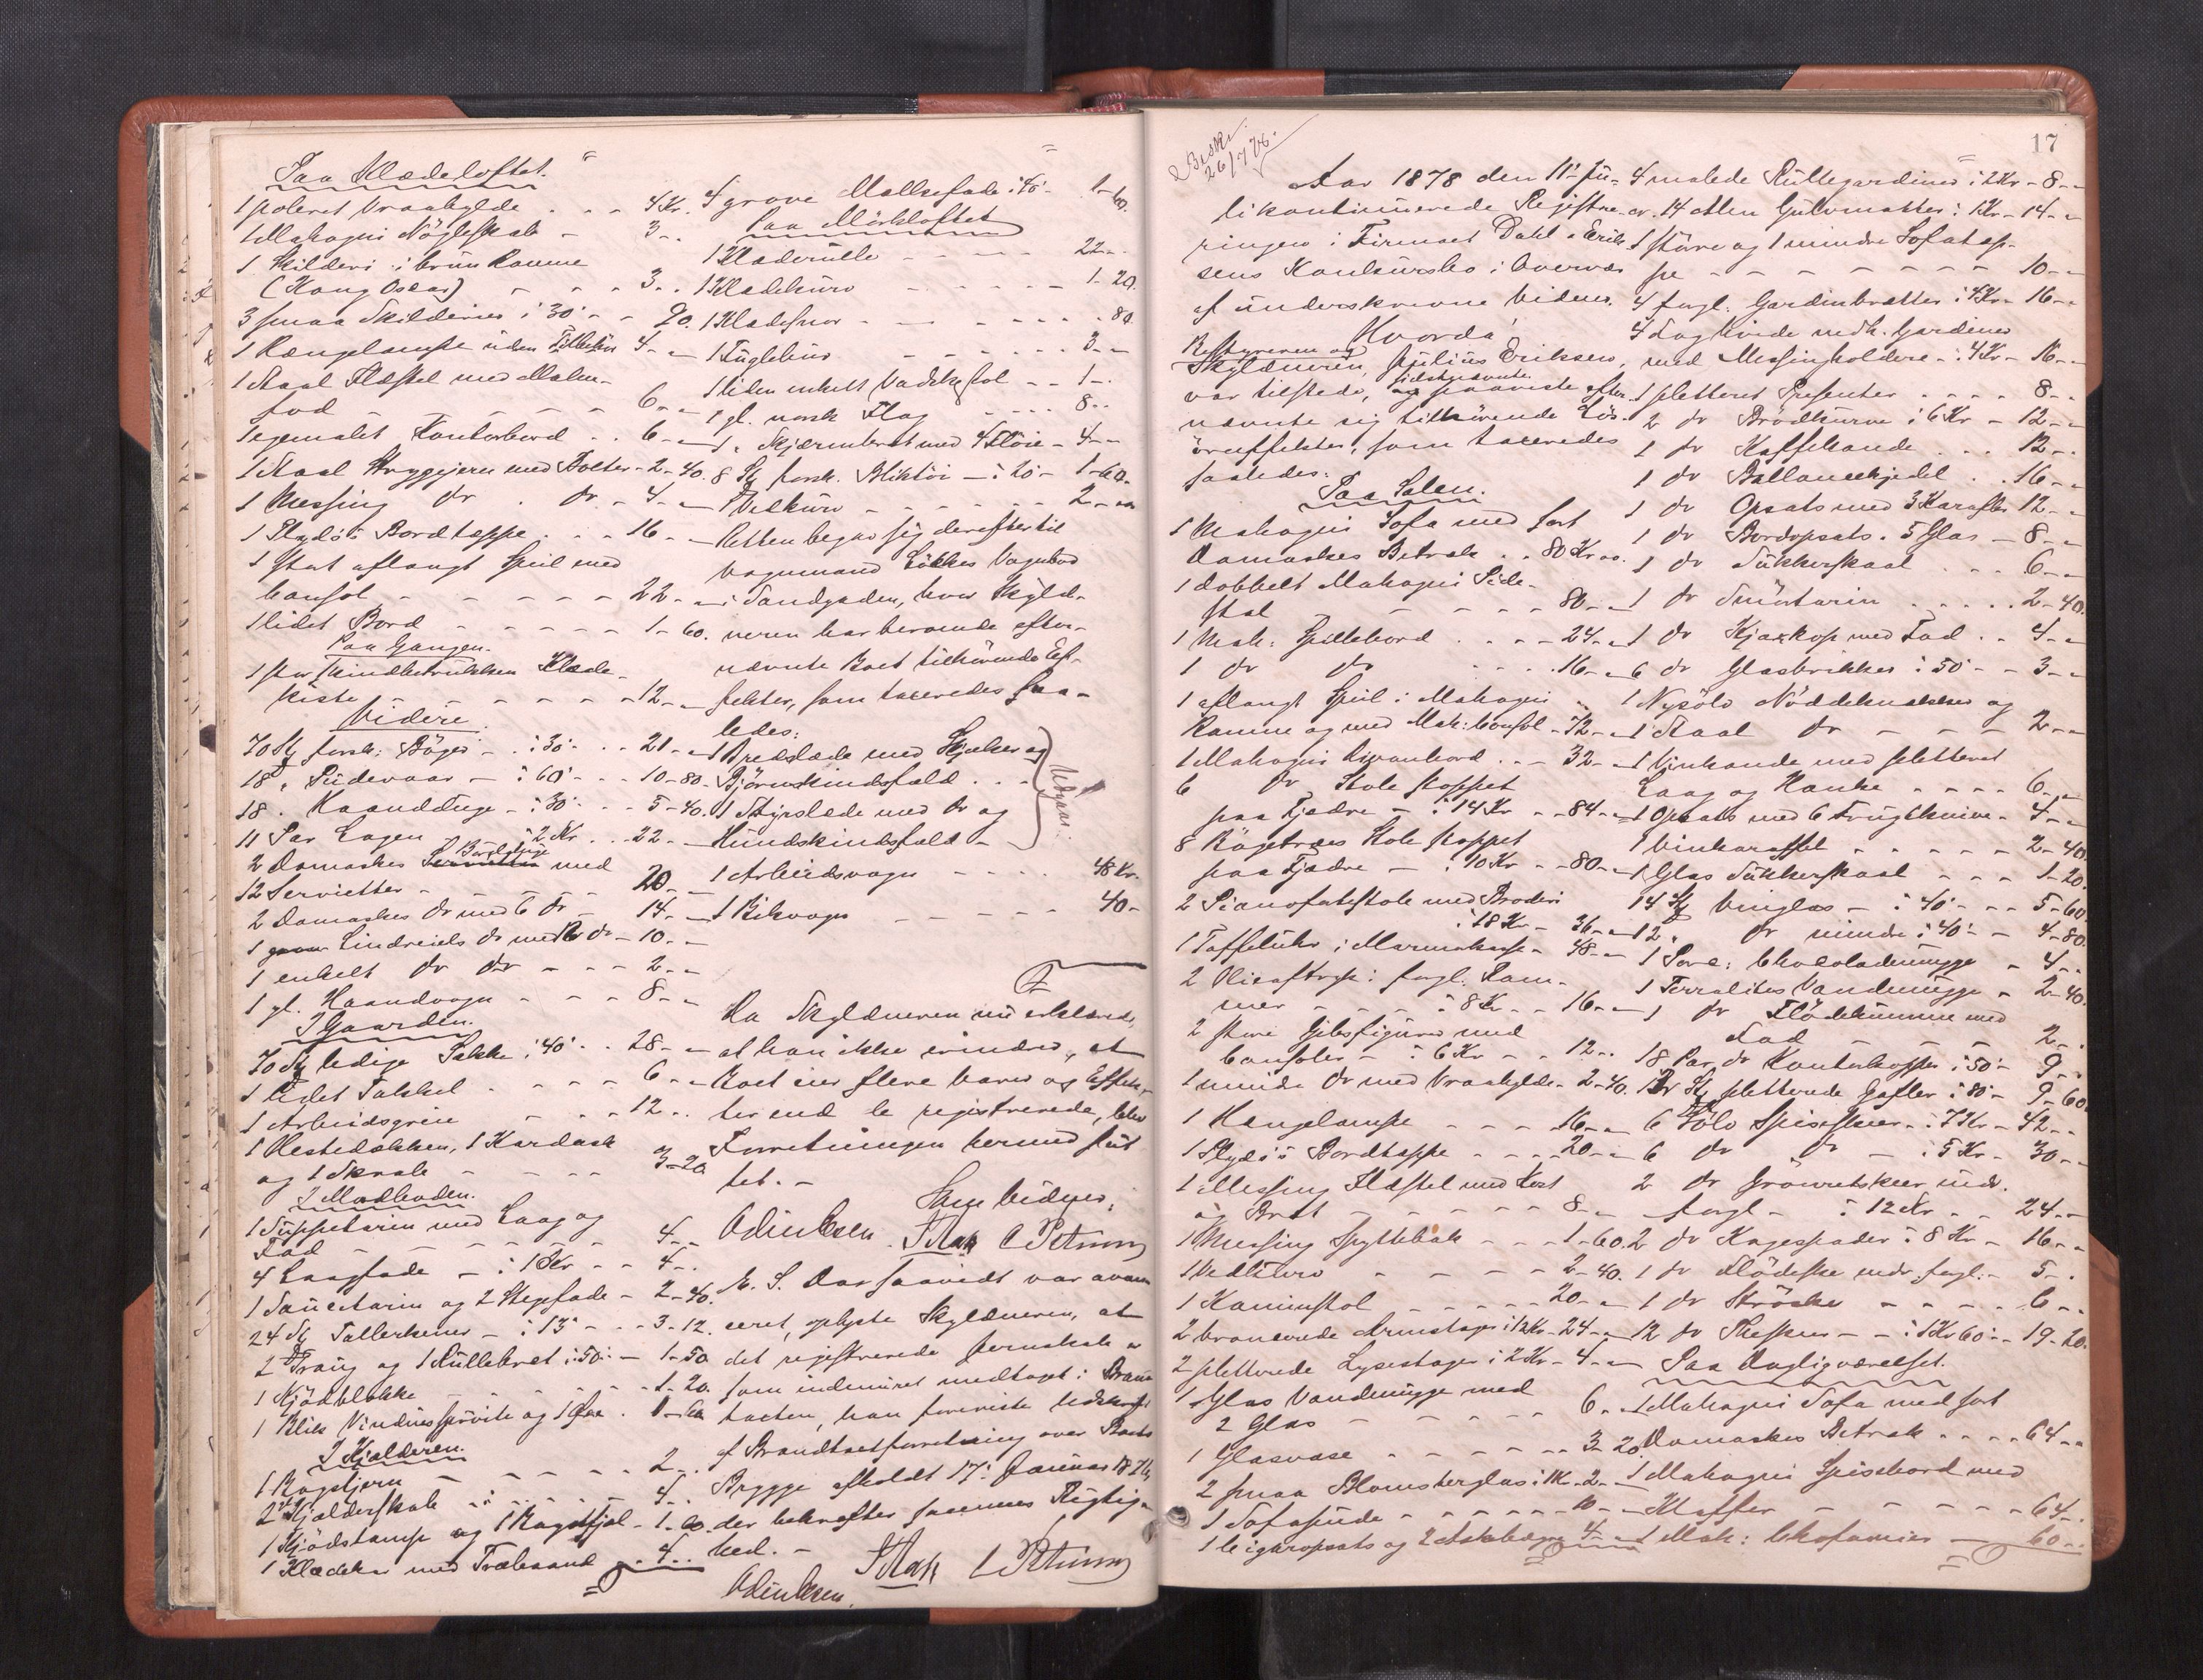 Paa Klædeloftet.
1 poleret Vraahylde - - 4 Kr.
1 Mahogni Nøgleskab - 3 -
1 Skilderi i brun Ramme
(Kong Oscar) - - - 3 -
3 smaa Skilderier à 30 - - 90.
1 Hængelampe uden - 4 -
1 Staal Ildstel med Malm-
fod - - - - 6 -
1 egemalet Kontorbord - - 6 -
1 Staal Strygejern med Bolter - 2-40.
1 Messing dr. dr. - 4 -
1 Plyds Bordtæppe - - 16 -
1 stort aflangt Speil med
Consol - - - - 22 -
1 lidet Bord - - - - 1-60.
Paa Gangen.
1 stor skindbetrukken Klæde-
kiste - - - - 12 -
Videre
70 St forsk: Bøger - à 30 - - 21 -
18 " Pudevaar - à 60 - - 10-80.
18 " Haandduge - à 30 - - 5-40.
11 Par Lagen - à 2 Kr - - 22 -
2 Damaskes Bordduge med
12 Servietter - - - 20 -
2 Damaskes dr med 6 dr - 14 -
1 dr med dr - 10 -
1 enkelt dr dr - - - 2 -
1 gl. Haandvogn - - - 8 -
I Gaarden.
70 St ledige Sække à 40 - - 28 -
1 lidet Takkel - - - - 6 -
1 Arbeidsgreie - - - 12 -
1 Hestedækken, 1 Kardask
og 1 Skrabe - - - 3-20
I Madboden.
1 Suppeterin med Laag og
Fad - - - - 4 -
4 Laagfade - à 1 Kr - - 4 -
1 Sauceterin og 2 Stegefade - 2-40.
24 St Tallerkener - à 13 - - 3-12.
2 Traug og 1 Rullebret à 50 - 1-50
1 Kjødblokke - - - - 1-20.
1 Blik Vinduessprøite og 1
I Kjælderen.
1 Bagstjern - - - - 2 -
2 Kjælderskabe - - - - 4 -
1 Kjødstampe og 1
1 Klædekar med - 4 -
4 grove Melkefade à 40 - 1-60.
Paa Mörkloftet
1 Klæderulle - - - - 22 -
1 Klædekurv - - - - 1-20.
1 Klædesnor - - - - 80.
1 Fuglebur - - - - 3 -
1 liden enkelt - - 1 -
1 gl. norsk Flag - - - 8 -
1 " Skjærmbret med 4 Fløie - 4 -
8 St forsk. Bliktøi - à 20 - 1-60.
1 Vedkurv - - - - 2 -
Retten begav sig derefter til
Vognmand Løkkes Vognbod
i Sandgaden, hvor Skyld-
neren har beroende efter-
nævnte Boet tilhørende Ef-
fekter, som taxeredes saa-
ledes:
1 Bredslæde med Skjæker og
Bjørneskindsfæld - -
1 Spidsslæde med dr og
Hundskindsfæld -
Udgaar.
1 Arbeidsvogn - - - - 48 Kr.
1 Rikvogn - - - - 40 -
Da Skyldneren nu erklærede,
at han ikke erindrer, at
Boet eier flere Varer og Effek-
ter end de registrerede, blev
Forretningen hermed slut
tet. -
Som Vidner:
Odin Olsen. C Petersen
N. S. Da saavidt var avan-
ceret, oplyste Skyldneren, at
det registrerede er
som indmuret medtaget i Brand-
taxten, han foreviste Udskrift
af Brandtaxtforretning over Boets
Brygge afholdt 17. Januar 1876,
der bekræfter sammes Rigtig-
hed. -
C Petersen
Odin Olsen.
17
Beskr
26/7 78.
Aar 1878 den 11 Ju-
li kontinuerede Registre-
ringen i Firmaet Dahl & Erik-
sens Konkursbo i Overvær
af underskrevne Vidner.
Hvorda!
Bestyreren og
Skyldneren, Julius Eriksen,
var tilstede, og sidstnævnte paaviste efter-
nævnte sig tilhørende Løs-
øreeffekter, som taxeredes
saaledes:
Paa Salen.
1 Mahogni Sofa med sort
Damaskes Betræk - - 80 Kr.
1 dobbelt Mahogni Side-
stol - - - - 80 -
1 Mah: Spillebord - - - 24 -
1 dr dr - - - 16 -
1 aflangt Speil i Mahogni
Ramme og med Mah: Consol - 72 -
1 Mahogni Divanbord - - 32 -
6 dr Stole stoppet
paa Fjædre - à 14 Kr - - 84 -
8 Bøgetræes Stole stoppet
paa Fjædre - à 10 Kr - - 80 -
2 Pianofortestole med Broderi
à 18 Kr - 36 -
1 Taffeluhr i Marmorkasse - 48 -
2 Olieaftryk i forgl. Ram-
mer - - - à 8 Kr - - 16 -
2 store Gibsfigurer med
Consoler - à 6 Kr - - 12 -
1 mindre dr med Vraahylde - 2-40.
1 Hængelampe - - - 16 -
1 Plyds Bordtæppe - - - 20 -
1 Messing Ildstel med Kost
og Bret - - - - 8 -
1 Messing Spyttebak - - - 1-60.
1 Vedkurv - - - - 2-40.
1 Kaminstol - - - - 20 -
2 broncerede Armstager à 12 Kr - 24 -
2 pletterede Lysestager à 2 Kr - 4 -
1 Glas Vandmugge med
2 Glas - - - - 6 -
1 Glasvase - - - - 3-20
2 smaa Blomsterglas à 1 K - 2 -
1 Sofapude - - - - 10 -
1 Cigaropsats og 2 Askebægre 4 -
4 malede Rullegardiner à 2 Kr - 8 -
cr. 14 Alen Gulvmatter à 1 Kr - 14 -
1 større og 1 mindre Sofatæp-
pe - - - - - - 10 -
4 forgl. Gardinbretter à 4 Kr - 16 -
4 Fag hvide Gardiner
med Messingholdere - à 4 Kr - 16 -
1 pletteret Presenter - - - 8 -
2 dr Brødkurve à 6 Kr - 12 -
1 dr Kaffekande - - - 12 -
1 dr Ballancekjedel - - 16 -
1 dr Opsats med 3 Karafler 12 -
1 dr Bordopsats - 5 Glas - 8 -
1 dr Sukkerskaal - - - 6 -
1 dr Smørterin - - - - 2-40.
1 dr med Fad - - 4 -
6 dr Glasbrikker à 50 - - 3 -
1 Nysølv Nøddeknækker og
1 Staal dr - - - 2 -
1 Vinkande med pletteret
Laag og Hanke - - - - 6 -
1 Opsats med 6 Frugtknive - 4 -
1 Vinkaraffel - - - - 2-40.
1 Glas Sukkerskaal - - - 1-20.
14 St Vinglas - à 40 - - 5-60.
12 " dr mindre à 40 - - 4-80.
1 Porc: Chocolademugge - 4 -
1 Terralites Vandmugge - 2-40.
1 dr Flødekumme med
Fad - - - 2 -
18 Par dr Kontorkopper à 50 - 9 -
12 St pletterede Gafler à 80 - 9-60.
6 Sølv Spiseskeer - à 7 Kr - 42 -
6 dr dr - à 5 Kr - 30 -
2 dr Grøwretskeer indv.
forgl - à 12 Kr - - 24 -
2 dr Kagespader à 8 Kr - 16 -
1 dr Flødeske indv. forgl: - 5 -
1 dr Strøske - - - - 6 -
12 dr Theskeer - - à 1 Kr 60 - 19-20.
Paa Dagligværelset.
1 Mahogni Sofa med sort
Damaskes Betræk - - - - 64 -
1 Mahogni Spisebord med
Klaffer - - - - 64 -
1 Mah: Chefonnier - 60 -